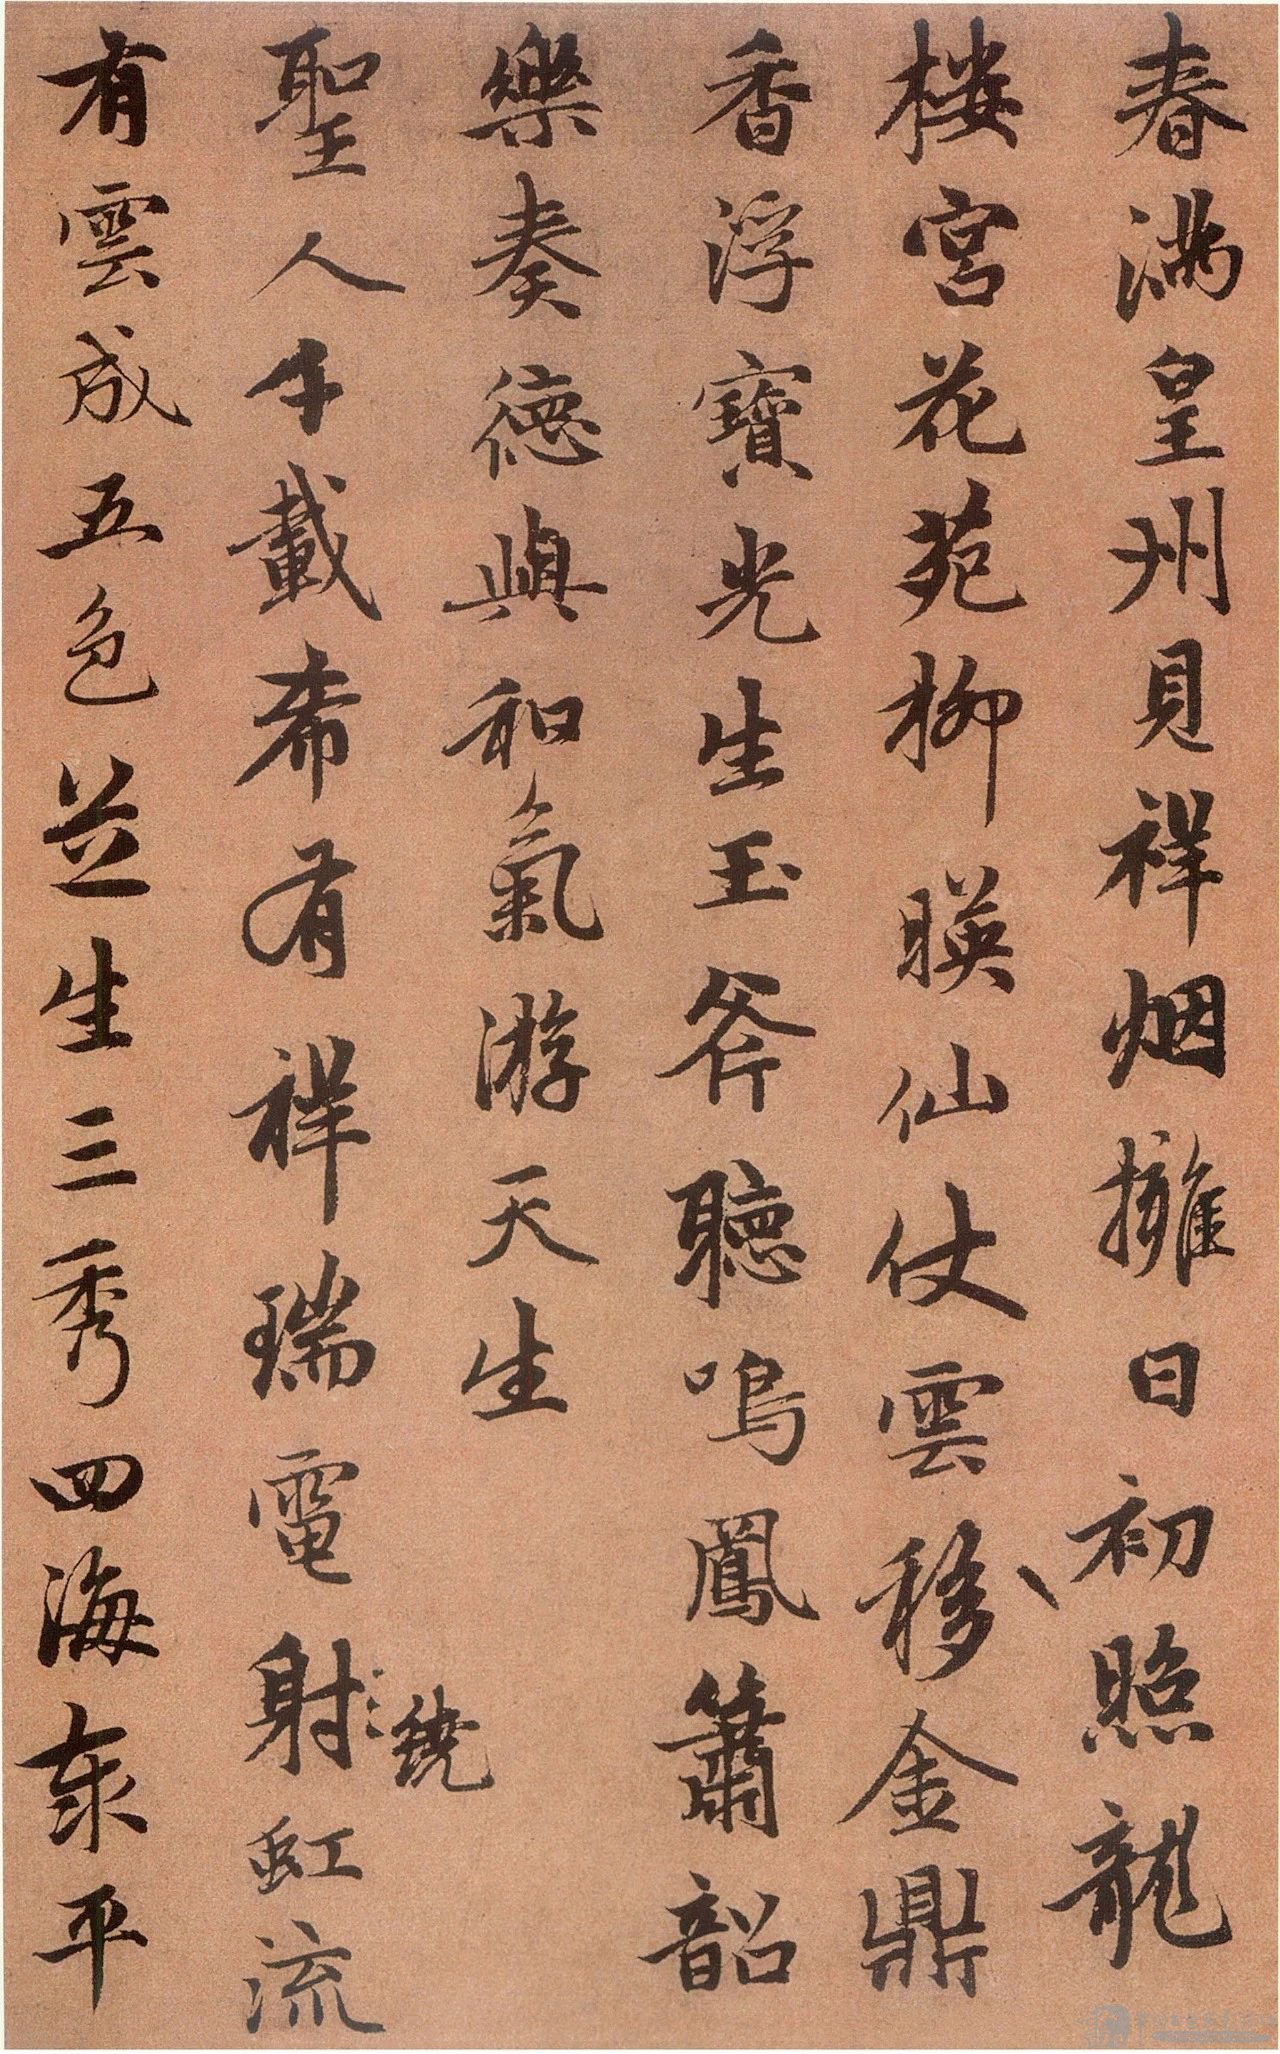 春滿皇州見祥烟擁日初照龍
楼宮花苑柳暎仙仗雲移金鼎
香浮寶光生玉斧聽鳴鳳簫韶
樂奏德與和氣游天生
聖人千載希有祥瑞電射虹流
繞
有雲成五色芝生三秀四海泰平